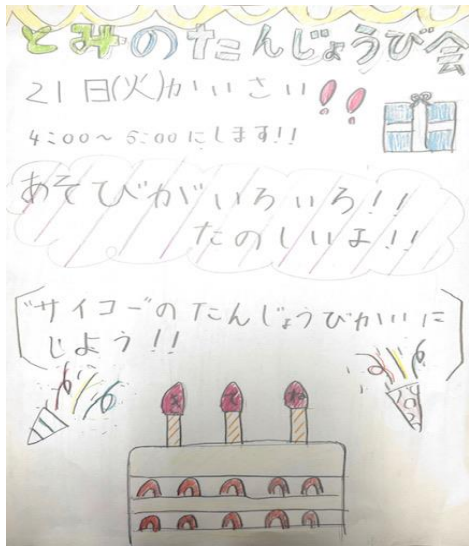 とみのたんじょうび会
21日(火)かいさい!!
4:00〜5:00にします!!
あそびがいろいろ!!
たのしいよ!!
"サイコー"のたんじょうびかいに
じよう!!
きてね